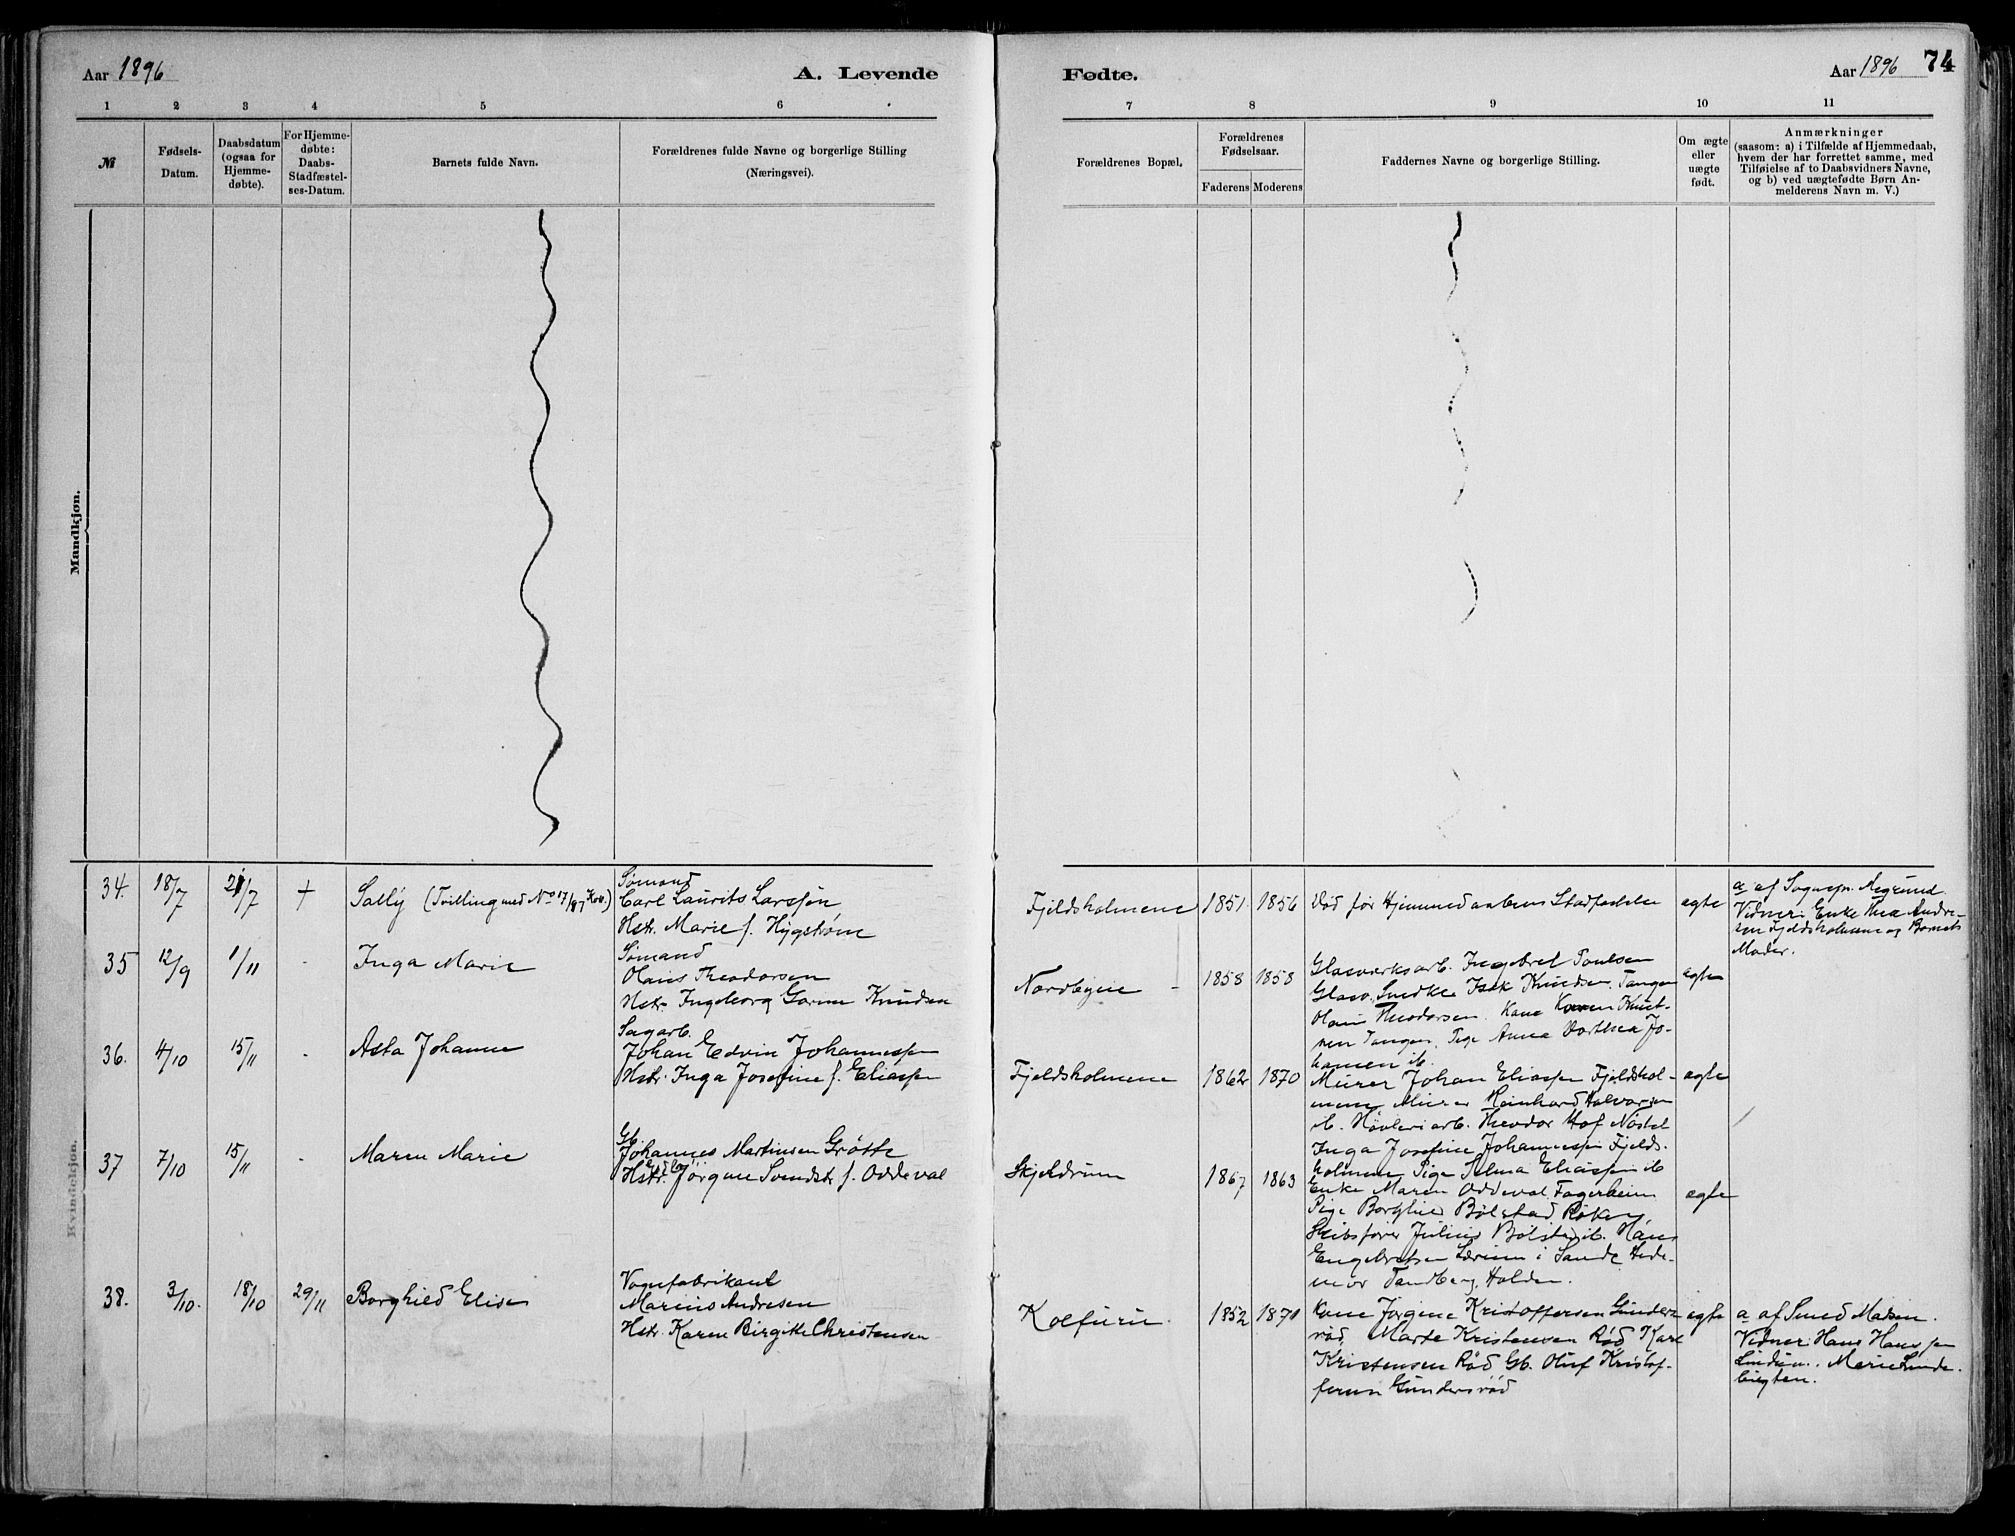 Aar 1896
A. Levende
Fødte.
Aar 1896
74
1 2 3 4 5 6 7 8 9 10 11
№
Fødsels-
Datum.
Daabsdatum
(ogsaa for
Hjemme-
døbte).
For Hjemme-
døbte:
Daabs-
Stadfæstel-
ses-Datum.
Barnets fulde Navn.
Forældrenes fulde Navne og borgerlige Stilling
(Næringsvei).
Forældrenes Bopæl.
Forældrenes
Fødselsaar.
Faderens Moderens
Faddernes Navne og borgerlige Stilling.
Om ægte
eller
uægte
født.
Anmærkninger
(saasom: a) i Tilfælde af Hjemmedaab,
hvem der har forrettet samme, med
Tilføielse af to Daabsvidners Navne,
og b) ved uægtefødte Børn An-
melderens Navn m. V.)
Mandkjøn.
Kvindekjøn.
34. 18/7 21/7 +
Sally (Tvilling med No 17
Sømand
Carl Laurits Larssøn
Hstr. Marie f. Hygstrøm
Fjeldsholmene 1851 1856
Død før Hjemmedaabens Stadfæstelse
egte
a af Sognepr. Aegrund.
Vidner: Enke Thea Andre-
sen Fjeldsholmene og Barnets
Moder.
35 12/9 1/11 -
Inga Marie
Sømand
Olaus Theodorsen
Hstr. Ingeborg Gorine Knudsen
Nordbyene - 1858 1858
Glasverksarb. Ingebret Poulsen
Glasv. Smedke Isak Knudsen, Tangen
Olaus Theodorsen. Kone Karen Knut-
sen Tangen. Pige Anna Dorthea Jo-
hansen ib.
egte
36. 4/10 15/11 -
Asta Johanne
Sagarb.
Johan Edvin Johannessen
Hstr. Inga Josefine f. Eliassen
Fjeldsholmene 1862 1870
Murer Johan Eliassen Fjeldshol-
mene Murer Reinhard Halvorsen
ib. Høvleriarb. Theodor Hof Nøstel
Inga Josefine Johannessen Fjelds-
holmene Pige Selma Eliassen ib
egte
37 7/10 15/11 -
Maren Marie
Gb.
Johannes Martinsen Grøtte
Hstr. Jørgine Svendsdr f. Oddeval
Skjeldrum 1867 1863
Enke Maren Oddeval, Fagerheim
Pige Borghild Bølstad Røken
Skibsfører Julius Bølstad ib. Hans
Engebretsen Lærum i Sande
Tandberg, Holden.
egte
38. 3/10. 18/10 29/11
Borghild Elise
Vognfabrikant
Marius Andresen
Hstr. Karen Birgitte Christensen
Kolfuru. 1852 1870
Kone Jørgine Kristoffersen Gunders-
rød Marte Kristensen Rød Karl
Kristensen Rød Gb. Oluf Kristof-
fersen Gundersrød
egte
a af Smed Madsen.
Vidner: Hans Hanssen
Marie Linde-